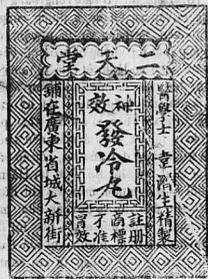 二天堂
醫學士 韋生精製
神效
發冷丸
註册
商標
不准
冒效
舖在廣東省城大新街